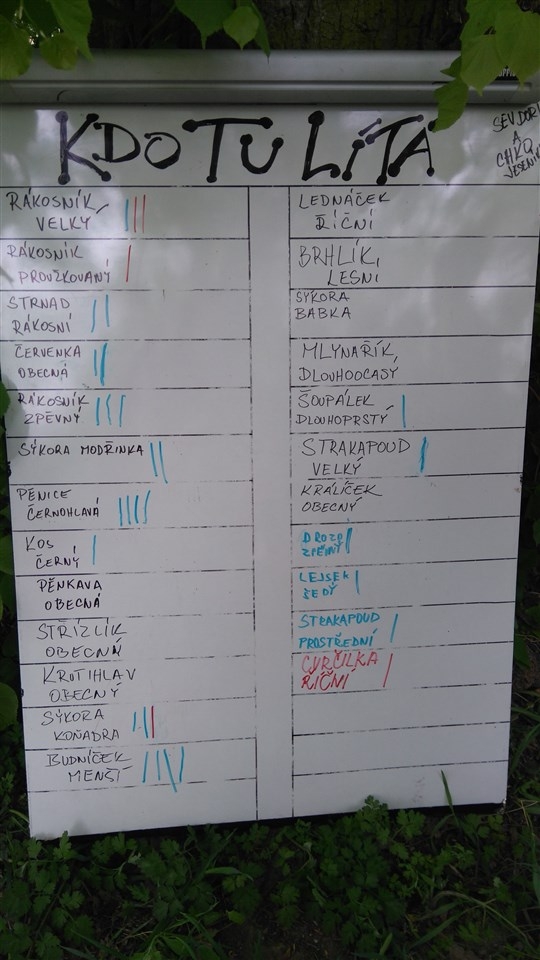 KDO TU LÍTÁ
SEV DOR
A
CHKO
JESENÍK
RÁKOSNÍK
VELKÝ
RÁKOSNÍK
PROUŽKOVANÝ
STRNAD
RÁKOSNÍ
ČERVENKA
OBECNÁ
RÁKOSNÍK
ZPĚVNÝ
SÝKORA MODŘINKA
PĚNICE
ČERNOHLAVÁ
KOS
ČERNÝ
PĚNKAVA
OBECNÁ
STŘÍZLÍK
OBECNÁ
KRUTIHLAV
OBECNÝ
SÝKORA
KOŇADRA
BUDNÍČEK
MENŠÍ
LEDNÁČEK
ŘÍČNÍ
BRHLÍK
LESNÍ
SÝKORA
BABKA
MLYNAŘÍK
DLOUHOOCASÝ
ŠOUPÁLEK
DLOUHOPRSTÝ
STRAKAPOUD
VELKÝ
KRÁLÍČEK
OBECNÝ
DROZD
ZPĚVNÝ
LEJSEK
ŠEDÝ
STRAKAPOUD
PROSTŘEDNÍ
CVRČILKA
ŘÍČNÍ